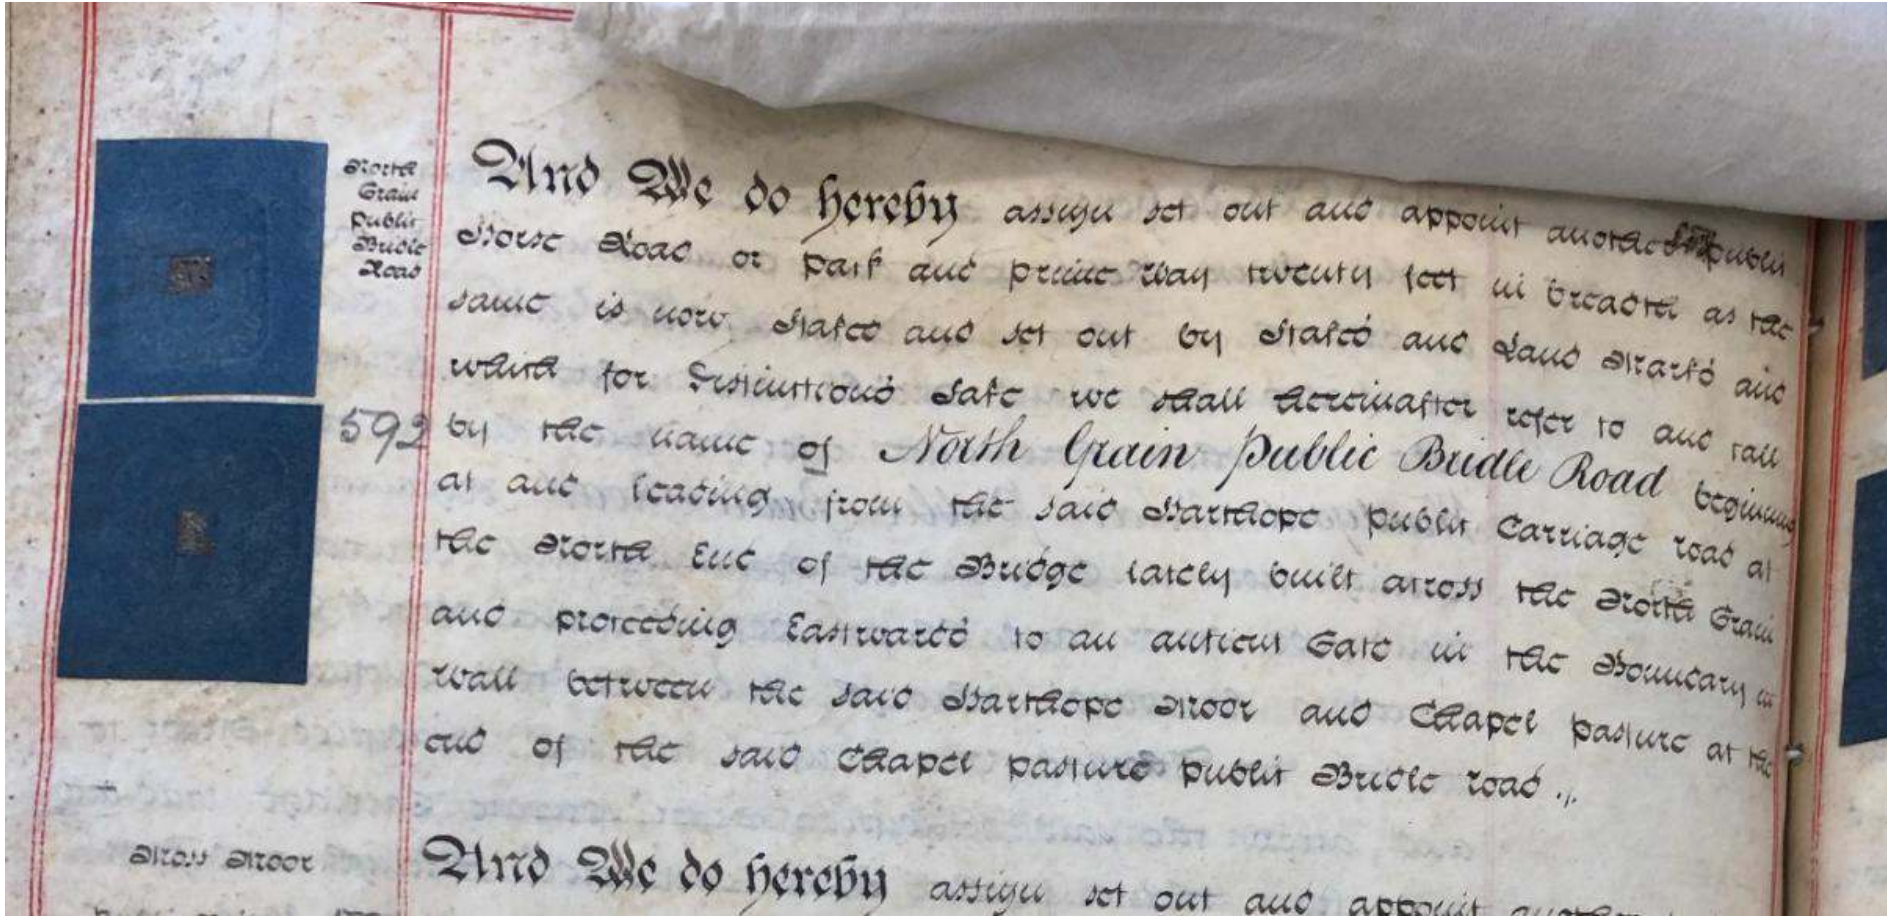 North
Grain
Public
Bridle
Road
592
And We do hereby assign set out and appoint another public
Horse Road or pack and prime way twenty feet in breadth as the
same is now Staked and set out by Stakes and Land Marks and
which for Distinctions Sake we shall hereinafter refer to and call
by the name of North Grain Public Bridle Road beginning
at and leading from the said Harthope public Carriage road at
the North End of the Bridge lately built across the North Grain
and proceeding Eastwards to an antient Gate in the Boundary
wall between the said Harthope Moor and Chapel pasture at the
end of the said Chapel pasture public Bridle road
Moss Moor
And We do hereby assign set out and appoint another